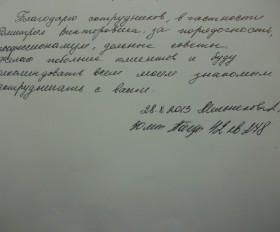 Благодарю сотрудников, в частности
Дмитрия Викторовича, за порядочность,
профессионализм, дельные советы.
Желаю побольше клиентов и буду
рекомендовать всем моим знакомым
сотрудничать с вами.
28.X 2013
42 кв 248